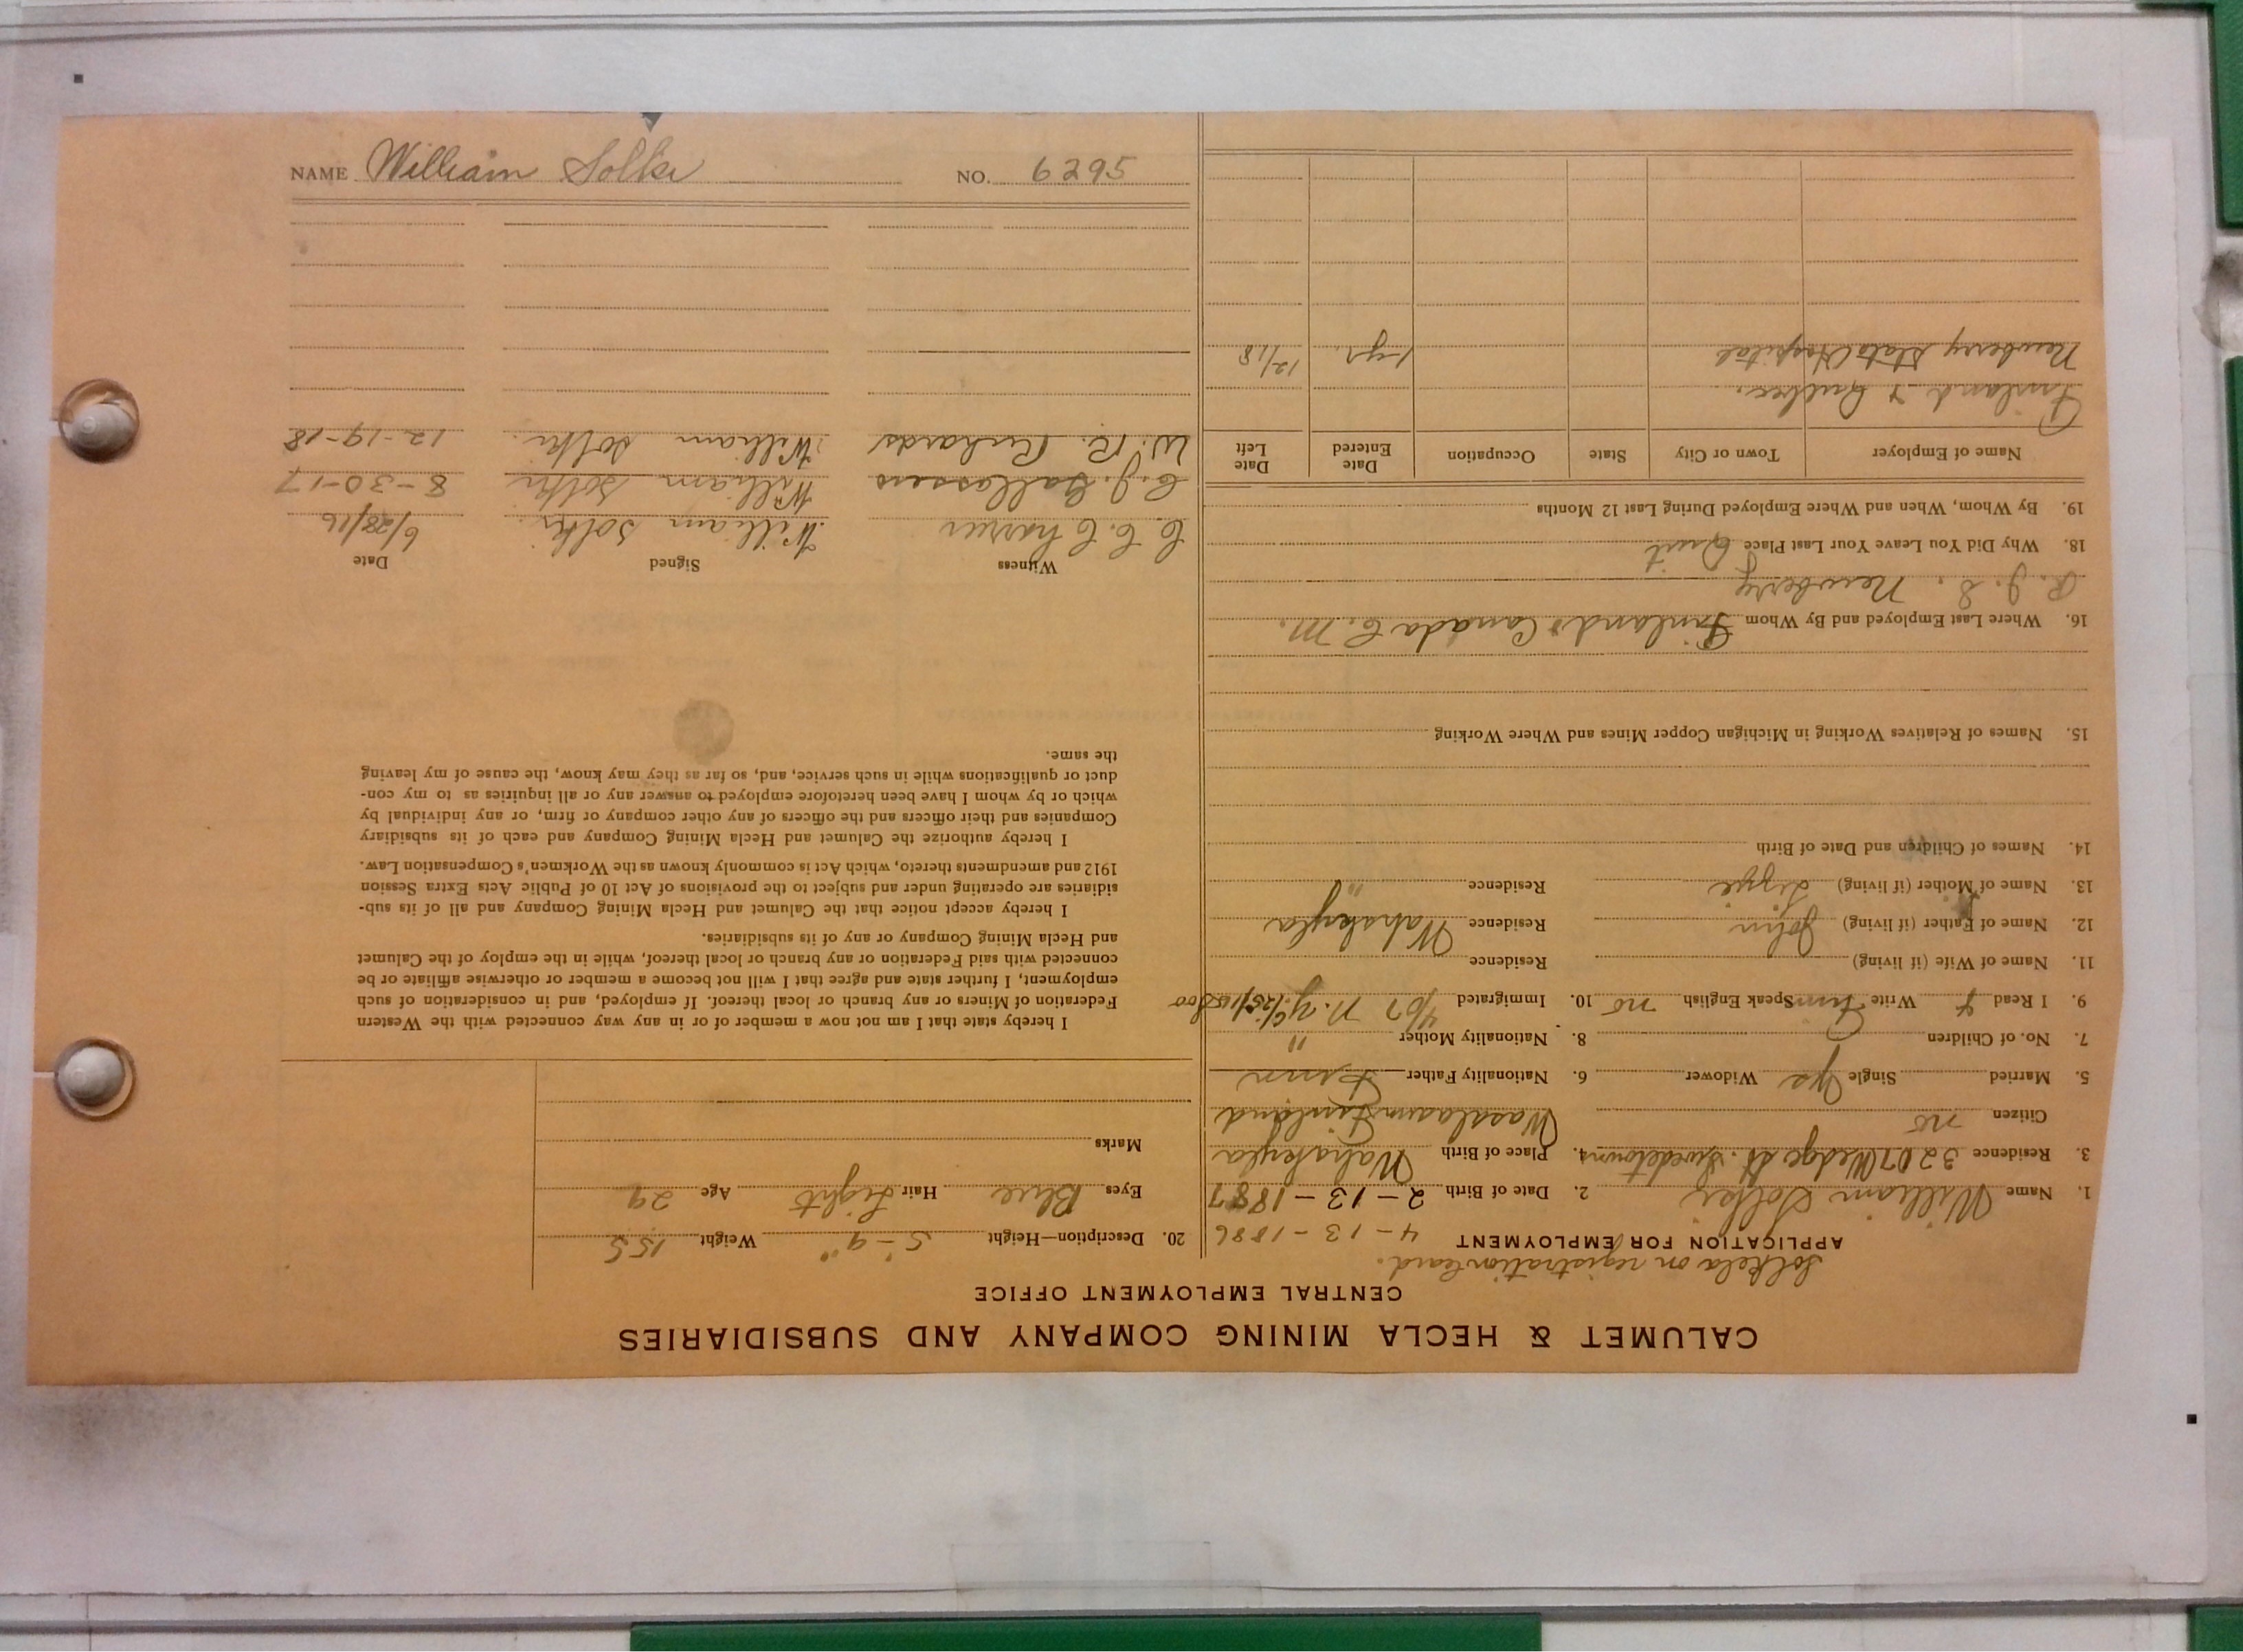 CALUMET & HECLA MINING COMPANY AND SUBSIDIARIES
CENTRAL EMPLOYMENT OFFICE
Solkela on registration card.
APPLICATION FOR EMPLOYMENT
4-13-1886
1. Name William Solki 2. Date of Birth 2-13-1887
3. Residence 3207 Wedge St. Swedetown 4. Place of Birth Wahakyla
Citizen no Wasalaani Finland
5. Married Single Yes Widower 6. Nationality Father Finn
7. No. of Children 8. Nationality Mother "
9. I Read Write Finn Speak English no 10. Immigrated 4/07 N.Y.
11. Name of Wife (if living) Residence
12. Name of Father (if living) John Residence Wahakyla
13. Name of Mother (if living) Lizzie Residence "
14. Names of Children and Date of Birth
15. Names of Relatives Working in Michigan Copper Mines and Where Working
16. Where Last Employed and By Whom Finland & Canada C.M.
Newberry
18. Why Did You Leave Your Last Place Quit
19. By Whom, When and Where Employed During Last 12 Months
Name of Employer Town or City State Occupation Date Entered Date Left
Finland & Quebec.
Newberry State Hospital 1-yr. 12/18
20. Description—Height 5'-9" Weight 155
Eyes Blue Hair Light Age 29
Marks
I hereby state that I am not now a member of or in any way connected with the Western
Federation of Miners or any branch or local thereof. If employed, and in consideration of such
employment, I further state and agree that I will not become a member or otherwise affiliate or be
connected with said Federation or any branch or local thereof, while in the employ of the Calumet
and Hecla Mining Company or any of its subsidiaries.
I hereby accept notice that the Calumet and Hecla Mining Company and all of its sub-
sidiaries are operating under and subject to the provisions of Act 10 of Public Acts Extra Session
1912 and amendments thereto, which Act is commonly known as the Workmen's Compensation Law.
I hereby authorize the Calumet and Hecla Mining Company and each of its subsidiary
Companies and their officers and the officers of any other company or firm, or any individual by
which or by whom I have been heretofore employed to answer any or all inquiries as to my con-
duct or qualifications while in such service, and, so far as they may know, the cause of my leaving
the same.
Witness Signed Date
C. C. Charrier William Solki. 6/28/16
C. J. Gallasero William Solki 8-30-17
W. R. Richards William Solki. 12-19-18
NAME William Solki NO. 6295